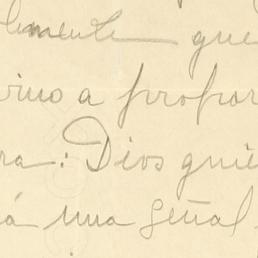 lmente que
vino a propor
ra: Dios quie
rá una señal